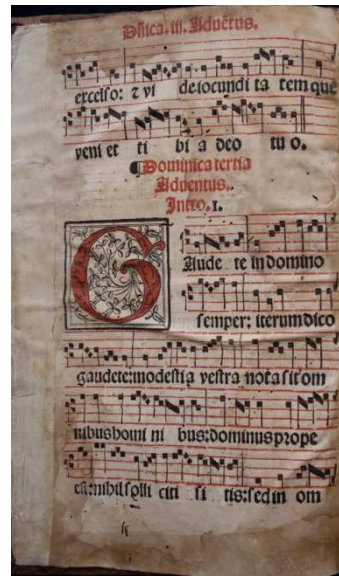 Dñica. iii. Aduẽtus.
excelso: ⁊ vi de iocundi ta tem que
veni et ti bi a deo tu o.
¶Dominica tertia
Aduentus.
Intro. 1.
GAude te in domino
semper: iterum dico
gaudete: modestia vestra nota sit om
nibus homi ni bus: dominus prope
est: nihil solli citi si tis: sed in om